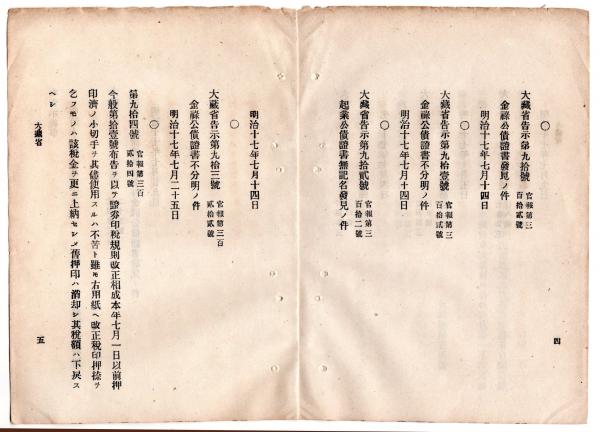 〇
大藏省告示第九拾號 官報第三百拾貳號
金祿公債證書發見ノ件
明治十七年七月十四日
〇
大藏省告示第九拾壹號 官報第三百拾貳號
金祿公債證書不分明ノ件
明治十七年七月十四日
〇
大藏省告示第九拾貳號 官報第三百拾二號
起業公債證書無記名發見ノ件
四
明治十七年七月十四日
〇
大藏省告示第九拾三號 官報第三百貳拾貳號
金祿公債證書不分明ノ件
明治十七年七月二十五日
〇
第九拾四號 官報第三百貳拾四號
今般第拾壹號布告ヲ以テ證券印稅規則改正相成本年七月一日以前押
印濟ノ小切手ヲ其儘使用スルハ不苦ト雖モ右用紙ヘ改正稅印押捺ヲ
乞フモノハ該稅金ヲ更ニ上納セシメ舊押印ハ消却シ其稅額ハ下戾ス
ヘシ
大藏省
五